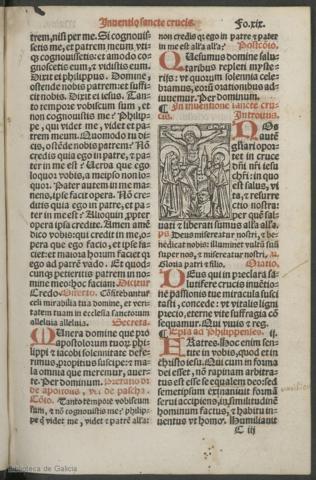 Inventio sancte crucis. Fo.xix.
trem, nisi per me. Si cognouis-
setis me, et patrem meum vti-
q3 cognouissetis: et amodo co-
gnoscetis eum, et vidistis eum.
Dixit ei philippus. Domine,
ostende nobis patrem: et suffi-
cit nobis. Dixit ei iesus. Tan-
to tempore vobiscum sum, et
non cognouistis me? Philip-
pe, qui videt me, videt et pa-
trem meum. Quomodo tu di-
cis, ostẽde nobis patrem? Nõ
credis quia ego in patre, et pa-
ter in me est? Uerba que ego
loquor vobis, a meipso non lo-
quor. Pater autem in me ma-
nens, ipse facit opera. Nõ cre-
ditis quia ego in patre, et pa-
ter in me est? Alioquin, ꝓpter
opera ipsa credite. Amen amẽ
dico vobis: qui credit in me, o-
pera que ego facio, et ipse fa-
ciet: et maiora horum faciet: q3
ego ad patrẽ vado. Et quod-
cunq3 petieritis patrem in no-
mine meo: hoc faciam. Dicitur
Credo. Offerto. Cõfitebuntur
celi mirabilia tua domine, et veri-
tatem tuam in ecclesia sanctorum
alleluia alleluia. Secreta.
MUnera domine que pro
apostolorum tuoꝝ phi-
lippi et iacobi solemnitate defe-
rimus, propitius suscipe: et ma-
la omnia que meremur, auer-
te. Per dominum. 
de apostolis, vt de pasch.
Cõio. Tanto tempore vobiscum
sum, et nõ cognouistis me? philip-
pe q̃ videt me, videt et patrẽ al'a:
non credis q2 ego in patre et pater
in me est al'a al'a? Postcõio.
QUesumus domine salu-
taribus repleti myste-
riis: vt quorum solennia cele-
bramus, eorũ orationibus ad-
iuuemur. Per dominum.
In inuentione sancte cru-
cis. Introitus.
NOs
autẽ
gl'iari opor-
tet in cruce
dñi nr̃i iesu
chr̃i: in quo
est salus, vi
ta, et resurre
ctio nostra:
per quẽ sal-
uati et liberati sumus al'a al'a.
ps Deus misereatur nostri, et be-
nedicat nobis: illuminet vultũ suũ
super nos, et misereatur nostri, 
Gloria patri et filio. Oratio.
DEus qui in preclara sa-
lutifere crucis inuẽtio-
ne passionis tue miracula susci
tasti, concede: vt vitalis ligni
precio, eterne vite suffragia cõ
sequamur. Qui viuis et reg.
Ep̃la ad philippenses. ij.
FRatres. Hoc enim sen-
tite in vobis, quod et in
christo iesu. Qui cum in forma
dei esset, nõ rapinam arbitra-
tus est esse se equalem deo: sed
semetipsum exinaniuit formã
serui accipiens, in similitudinẽ
hominum factus, et habitu in-
uentus vt homo. Humiliauit
C iij
Biblioteca de Galicia